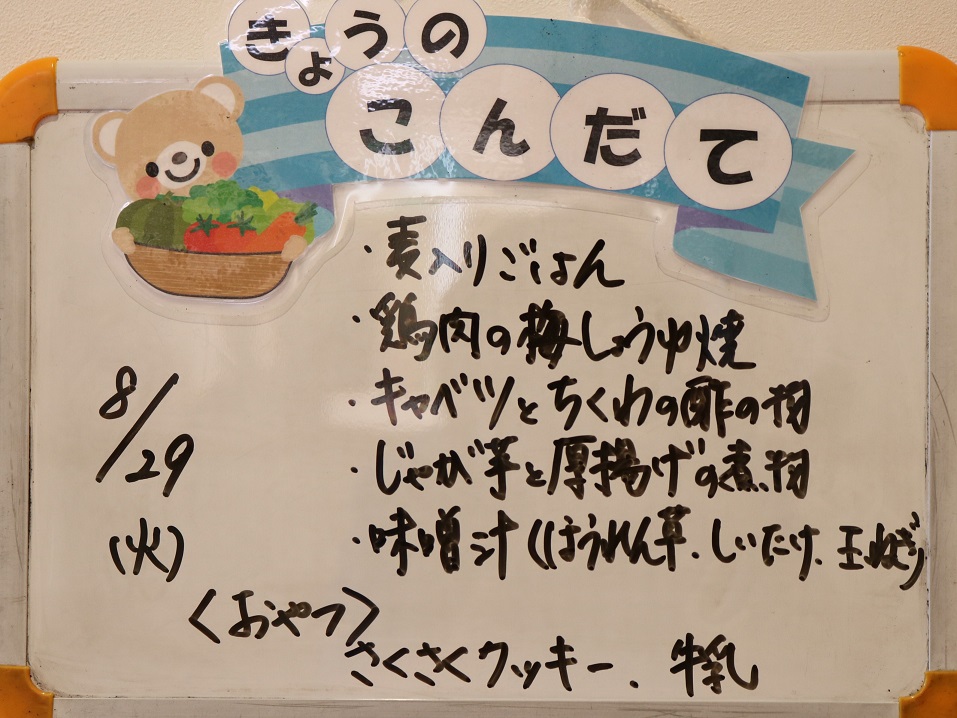 きょうの
こんだて
・麦入りごはん
・鶏肉の梅しょうゆ焼
・キャベツとちくわの酢の物
・じゃが芋と厚揚げの煮物
・味噌汁(ほうれん草、しいたけ、玉ねぎ)
8/29
(火)
<おやつ>
さくさくクッキー、牛乳